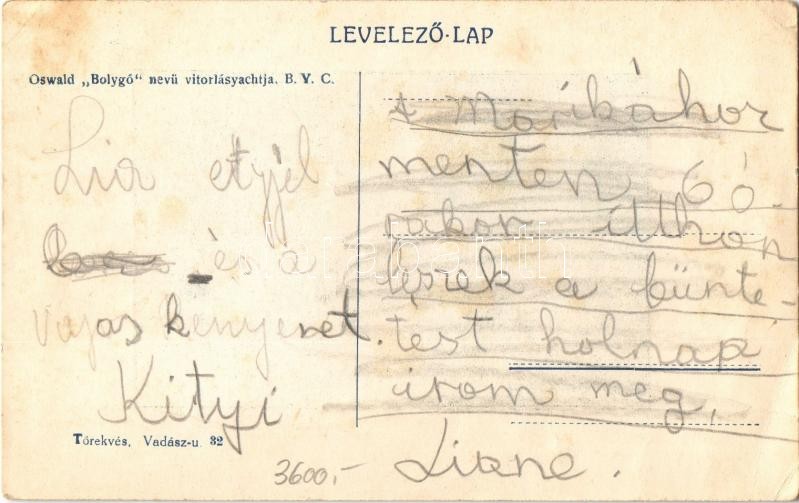 LEVELEZŐ-LAP
Oswald „Bolygó" nevü vitorlásyachtja. B. Y. C.
Lia etyjél
és a
vajas kenyeret.
Kityi
Törekvés, Vadász-u. 32
A Marikához
mentem 6 ó-
rakor itthon
leszek a bünte-
tést holnap
irom meg,
Liane.
3600,-